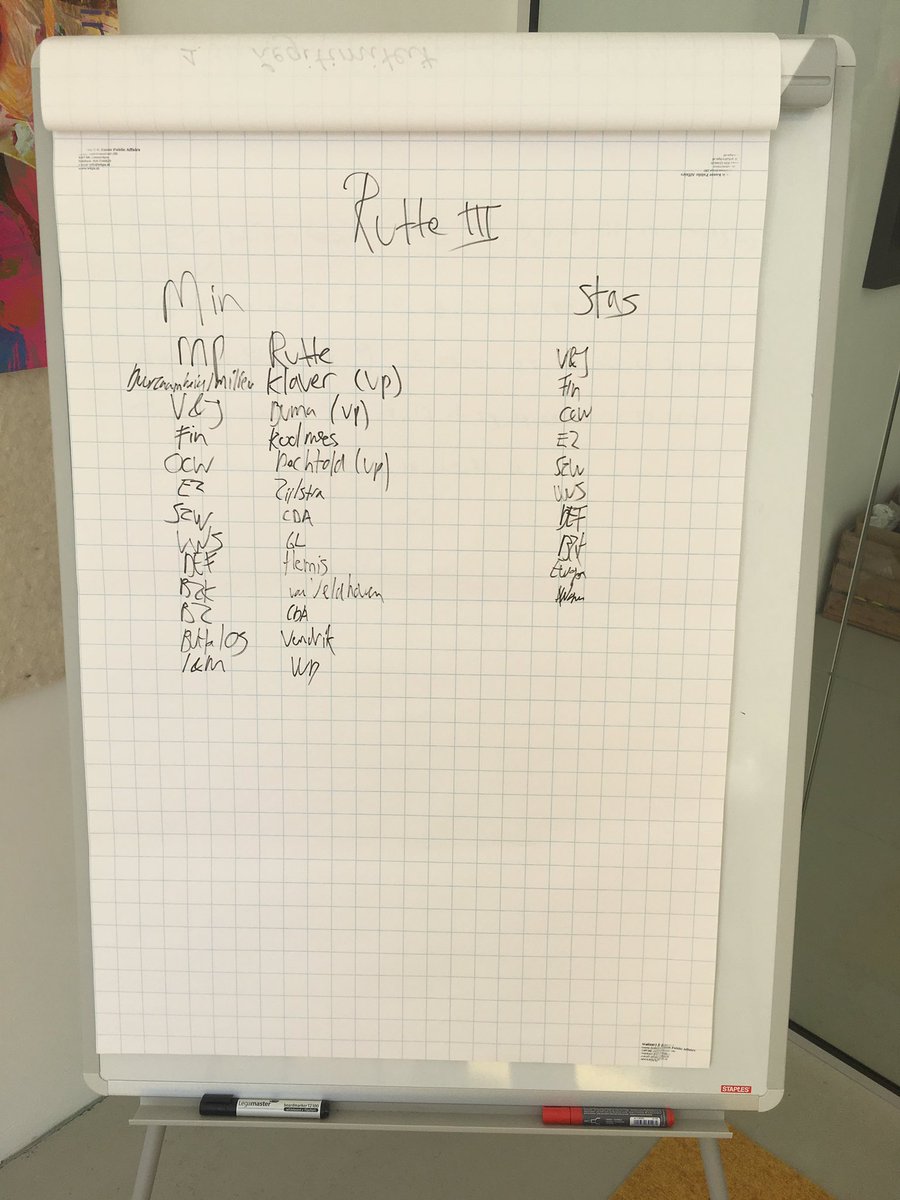 Rutte III
Min
Stas
MP Rutte
Duurzaamheid/milieu Klaver (VP)
V&J Buma (VP)
Fin Koolmees
OCW Pechtold (VP)
EZ Zijlstra
SZW CDA
VWS GL
DEF Hennis
BZK van Veldhoven
BZ CDA
BuHa/OS Vendrik
I&M VVD
V&J
Fin
OCW
EZ
SZW
VWS
DEF
BZK
Europa
Public Affairs
STAPLES
Legamaster